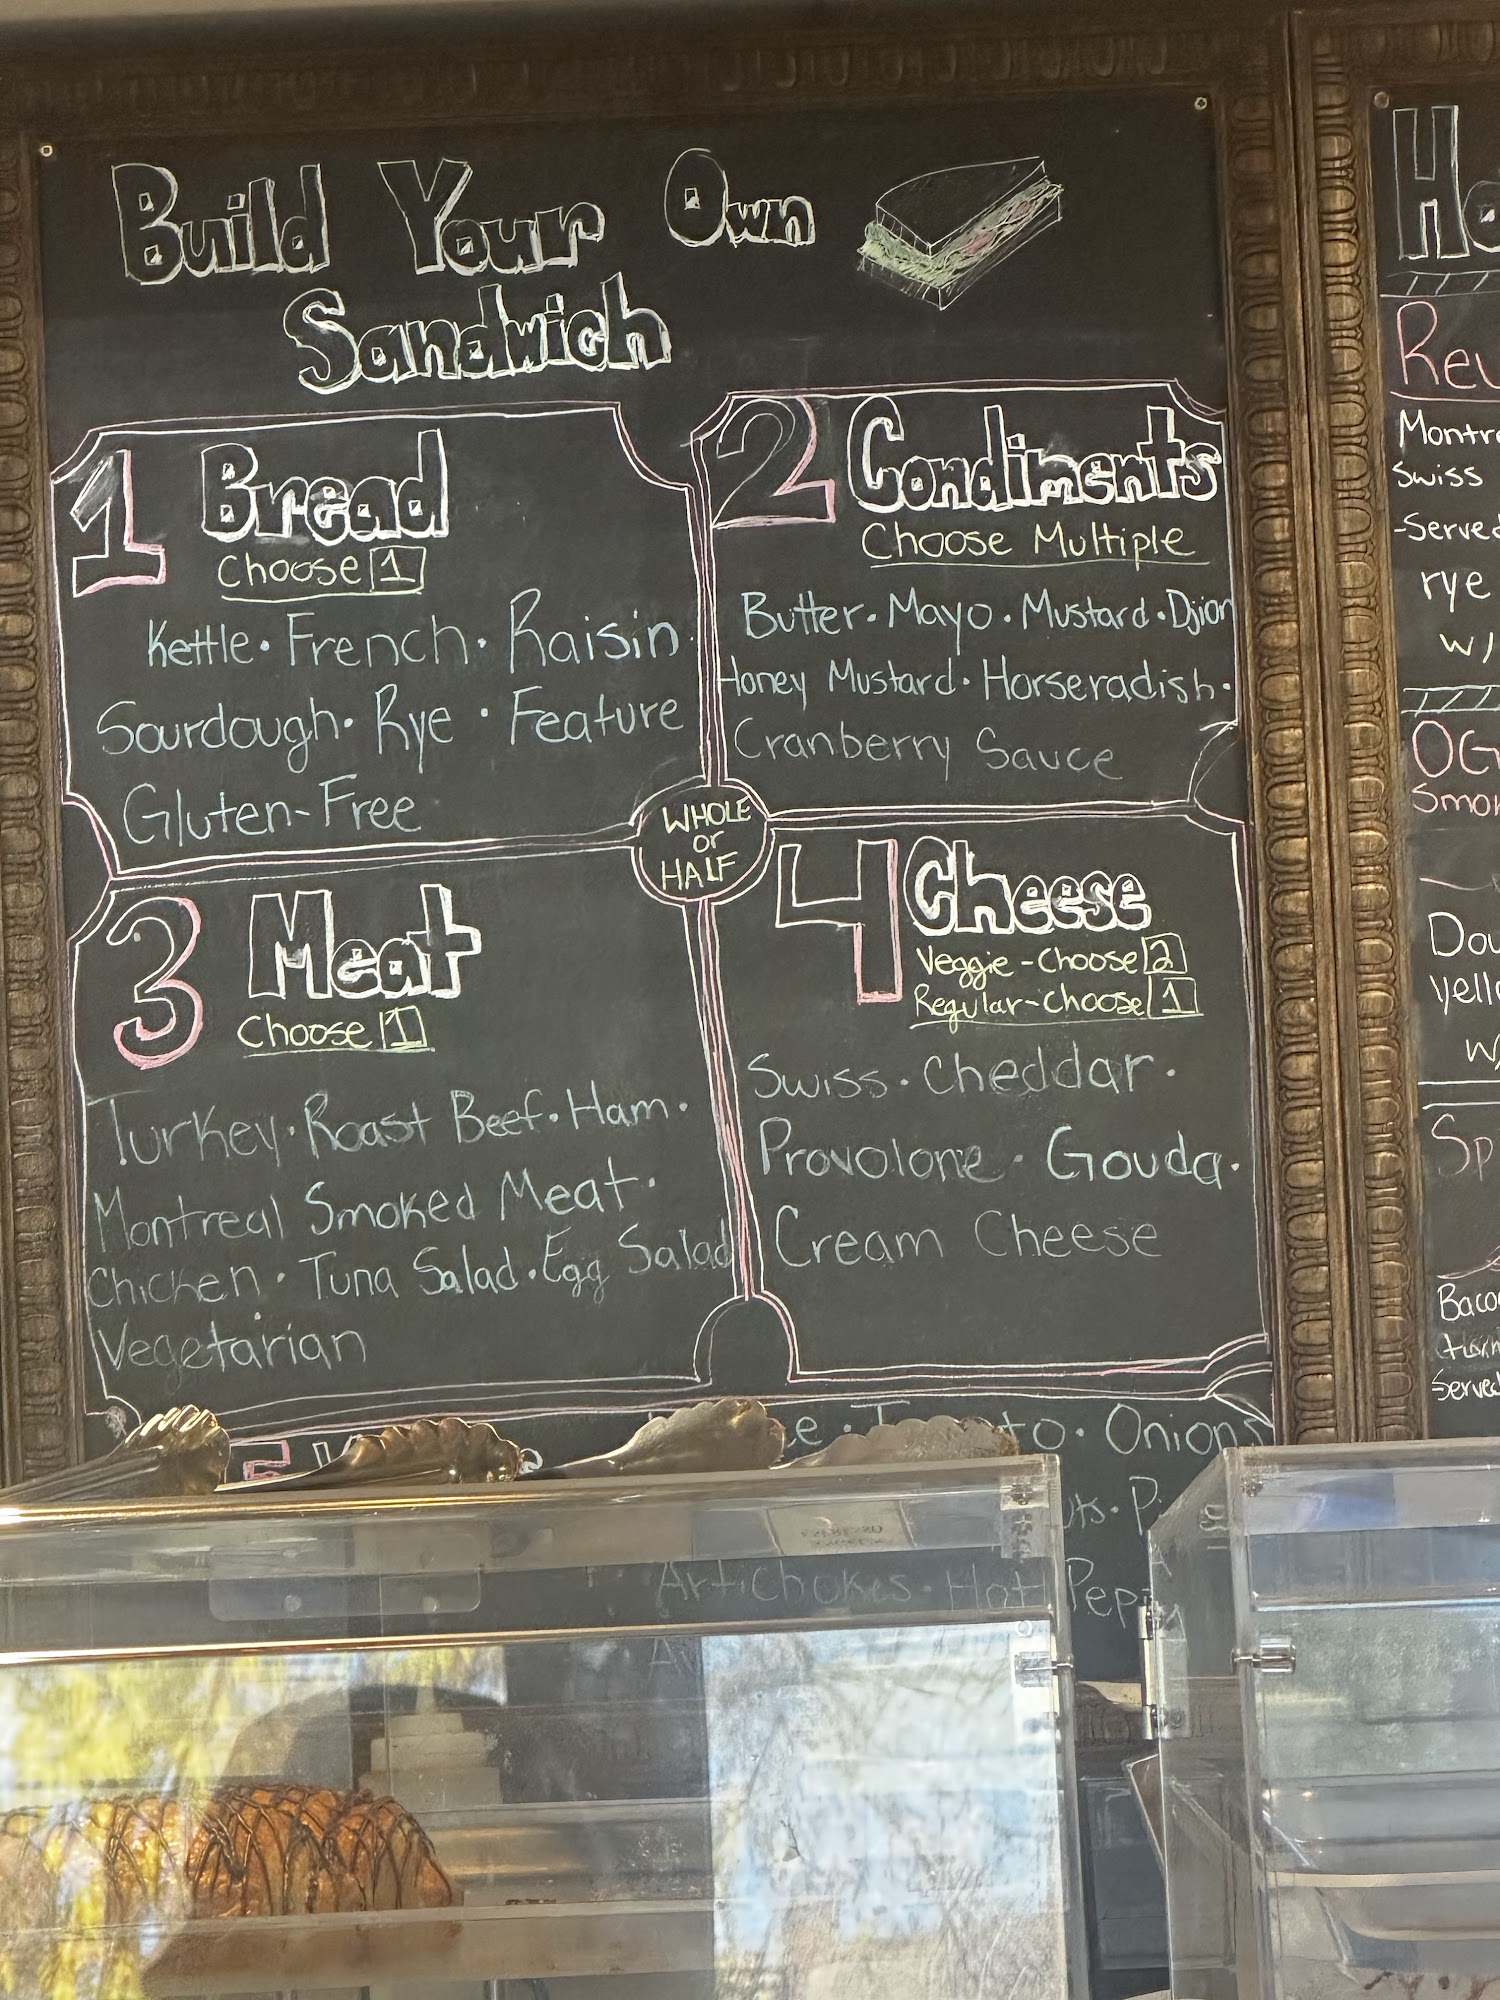 Build Your Own
Sandwich
1 Bread
Choose 1
Kettle · French · Raisin
Sourdough · Rye · Feature
Gluten-Free
2 Condiments
Choose Multiple
Butter · Mayo · Mustard · Djion
Honey Mustard · Horseradish ·
Cranberry Sauce
WHOLE
or
HALF
3 Meat
Choose 1
Turkey · Roast Beef · Ham ·
Montreal Smoked Meat ·
Chicken · Tuna Salad · Egg Salad
Vegetarian
4 Cheese
Veggie - Choose 2
Regular - Choose 1
Swiss · Cheddar ·
Provolone · Gouda ·
Cream Cheese
5
Onions
Artichokes · Hot Pep
Ho
Reu
Montre
Swiss
-Served
rye
w/
OG
Smo
Dou
yello
w/
Sp
Baco
Served